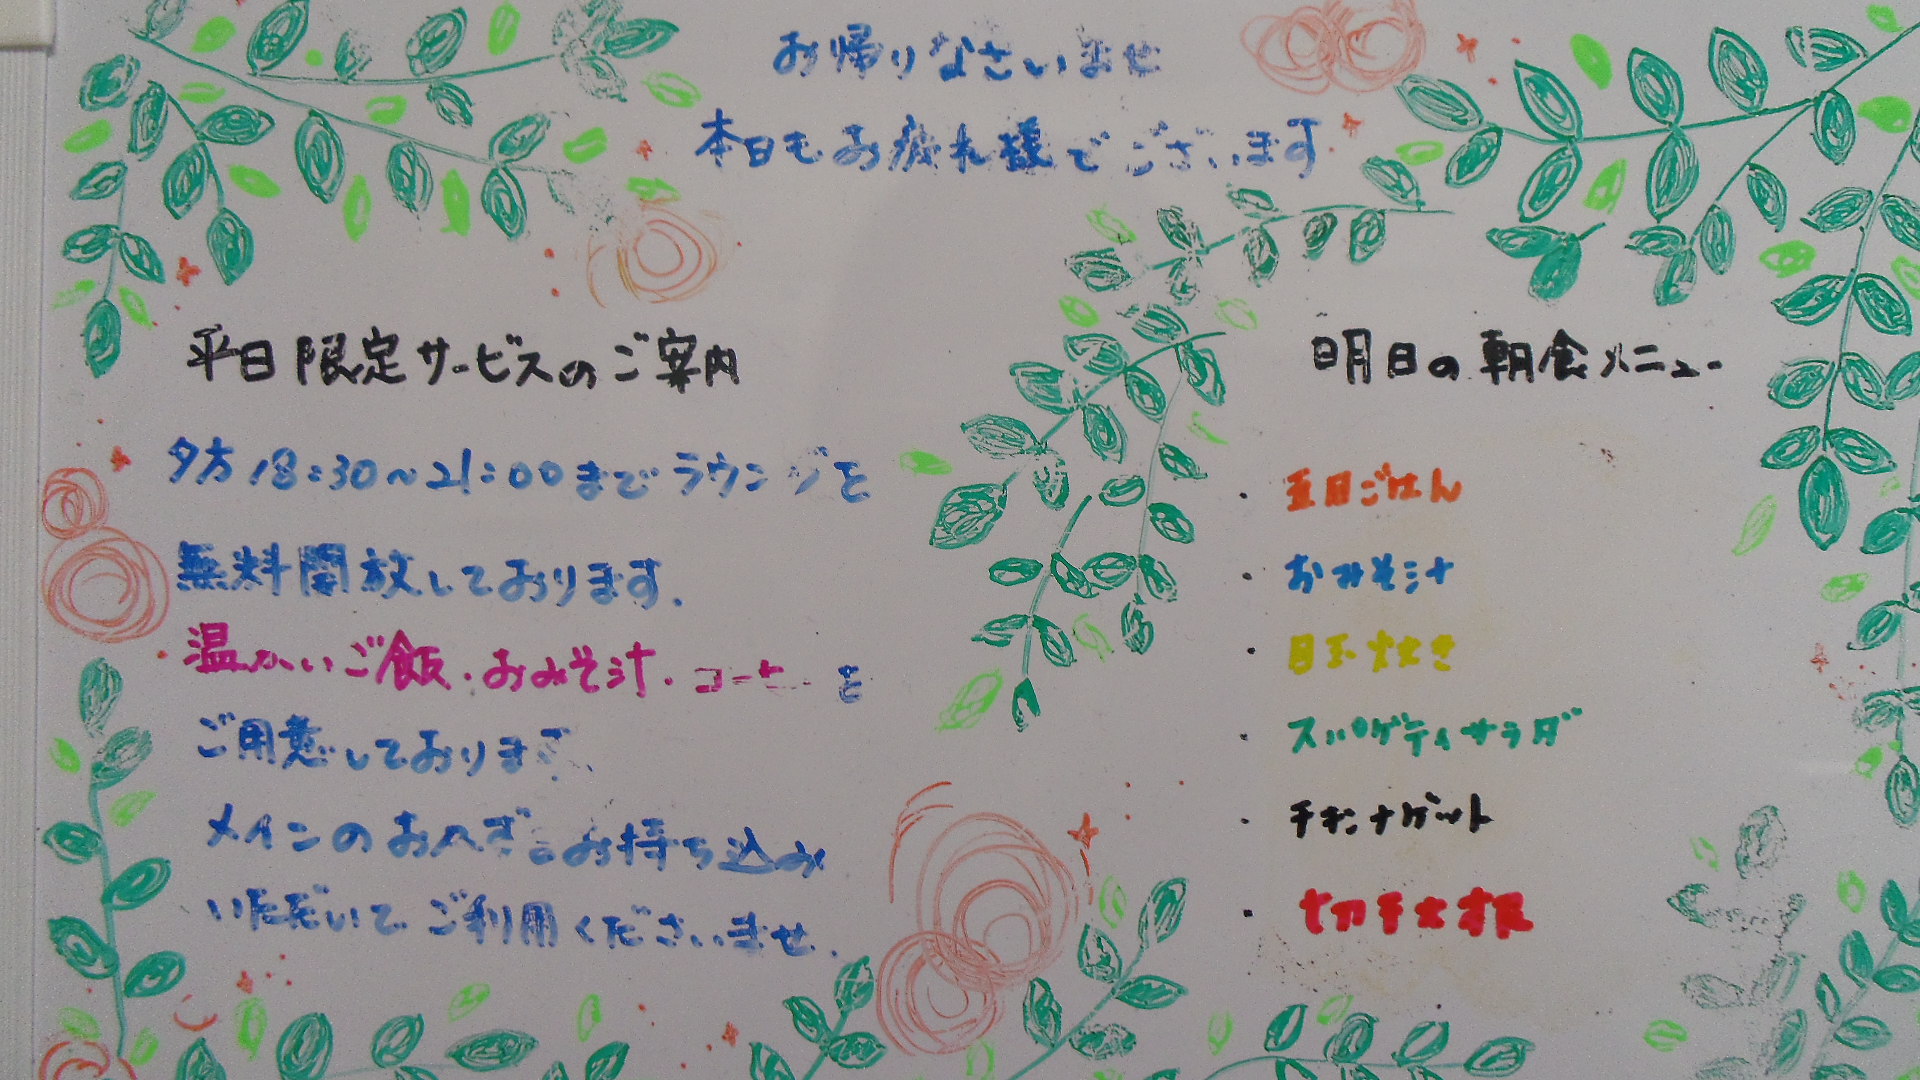 お帰りなさいませ
本日もお疲れ様でございます
平日限定サービスのご案内
夕方18:30~21:00までラウンジを
無料開放しております.
温かいご飯・おみそ汁・コーヒーを
ご用意しております.
メインのおかずをお持ち込み
いただいてご利用くださいませ.
明日の朝食メニュー
・五目ごはん
・おみそ汁
・目玉焼き
・スパゲティサラダ
・チキンナゲット
・切干大根